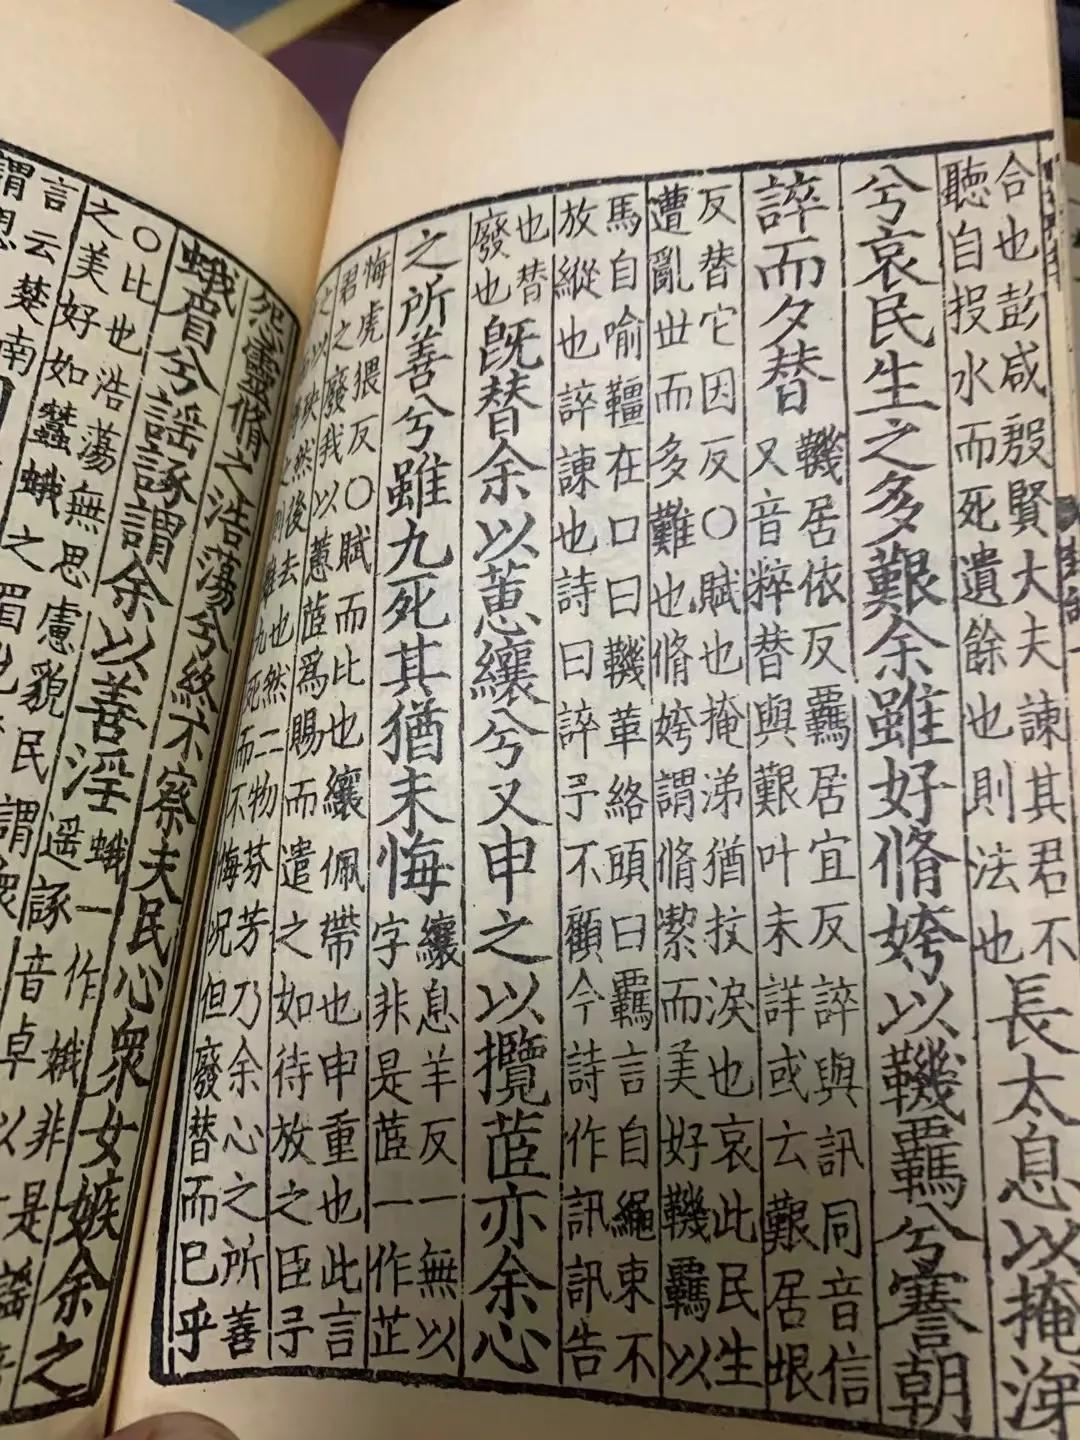 合也彭咸殷賢大夫諫其君不
聽自投水而死遺餘也則法也
長太息以掩涕
兮哀民生之多艱余雖好脩姱以鞿羈兮謇朝
誶而夕替
鞿居依反羈居宜反誶與訊同音信
又音粹替與艱叶未詳或云艱居垠
反替它因反○賦也掩涕猶抆淚也哀此民生
遭亂世而多難也脩姱謂脩潔而美好鞿羈以
馬自喻韁在口曰鞿革絡頭曰羈言自繩束不
放縱也誶諫也詩曰誶予不顧今詩作訊訊告
也替
廢也
既替余以蕙纕兮又申之以攬茝亦余心
之所善兮雖九死其猶未悔
纕息羊反一無以
字非是茝一作芷
悔虎猥反○賦而比也纕佩帶也申重也此言
君之廢我以蕙茝爲賜而遣之如待放之臣予
之以玦然後去也然二物芬芳乃余心之所善
之則雖九死而不悔況但廢替而已乎
怨靈脩之浩蕩兮終不察夫民心衆女嫉余之
蛾眉兮謠諑謂余以善淫
蛾一作娥非是謠
遥諑音卓以
○比也浩蕩無思慮貌民謂衆
之美好如蠶蛾之眉
言云楚南
謂思